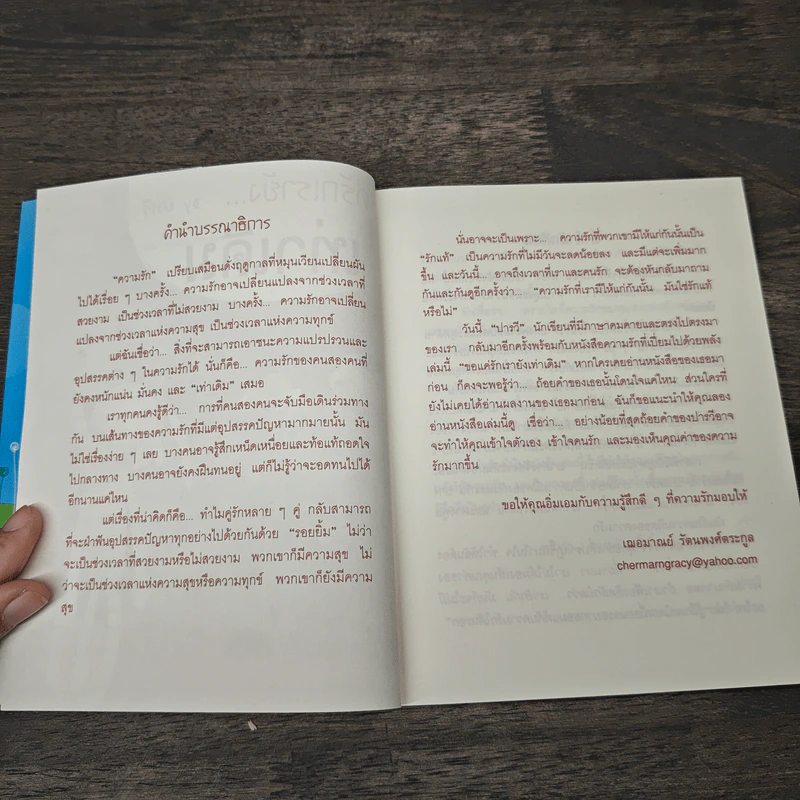 คำนำบรรณาธิการ
“ความรัก” เปรียบเสมือนดั่งฤดูกาลที่หมุนเวียนเปลี่ยนผัน
ไปได้เรื่อย ๆ บางครั้ง... ความรักอาจเปลี่ยนแปลงจากช่วงเวลาที่
สวยงาม เป็นช่วงเวลาที่ไม่สวยงาม บางครั้ง... ความรักอาจเปลี่ยน
แปลงจากช่วงเวลาแห่งความสุข เป็นช่วงเวลาแห่งความทุกข์
แต่ฉันเชื่อว่า... สิ่งที่จะสามารถเอาชนะความแปรปรวนและ
อุปสรรคต่าง ๆ ในความรักได้ นั่นก็คือ... ความรักของคนสองคนที่
ยังคงหนักแน่น มั่นคง และ “เท่าเดิม” เสมอ
เราทุกคนคงรู้ดีว่า... การที่คนสองคนจะจับมือเดินร่วมทาง
กัน บนเส้นทางของความรักที่มีแต่อุปสรรคปัญหามากมายนั้น มัน
ไม่ใช่เรื่องง่าย ๆ เลย บางคนอาจรู้สึกเหน็ดเหนื่อยและท้อแท้ถอดใจ
ไปกลางทาง บางคนอาจยังคงฝืนทนอยู่ แต่ก็ไม่รู้ว่าจะอดทนไปได้
อีกนานแค่ไหน
แต่เรื่องที่น่าคิดก็คือ... ทำไมคู่รักหลาย ๆ คู่ กลับสามารถ
ที่จะฝ่าฟันอุปสรรคปัญหาทุกอย่างไปด้วยกันด้วย “รอยยิ้ม” ไม่ว่า
จะเป็นช่วงเวลาที่สวยงามหรือไม่สวยงาม พวกเขาก็มีความสุข ไม่
ว่าจะเป็นช่วงเวลาแห่งความสุขหรือความทุกข์ พวกเขาก็ยังมีความ
สุข
นั่นอาจจะเป็นเพราะ... ความรักที่พวกเขามีให้แก่กันนั้นเป็น
“รักแท้” เป็นความรักที่ไม่มีวันจะลดน้อยลง และมีแต่จะเพิ่มมาก
ขึ้น และวันนี้... อาจถึงเวลาที่เราและคนรัก จะต้องหันกลับมาถาม
กันและกันดูอีกครั้งว่า... “ความรักที่เรามีให้แก่กันนั้น มันใช่รักแท้
หรือไม่”
วันนี้ “ปารวี” นักเขียนที่มีภาษาคมคายและตรงไปตรงมา
ของเรา กลับมาอีกครั้งพร้อมกับหนังสือความรักที่เปี่ยมไปด้วยพลัง
เล่มนี้ “ขอแค่รักเรายังเท่าเดิม” หากใครเคยอ่านหนังสือของเธอมา
ก่อน ก็คงจะพอรู้ว่า... ถ้อยคำของเธอนั้นโดนใจแค่ไหน ส่วนใครที่
ยังไม่เคยได้อ่านผลงานของเธอมาก่อน ฉันก็ขอแนะนำให้คุณลอง
อ่านหนังสือเล่มนี้ดู เชื่อว่า... อย่างน้อยที่สุดถ้อยคำของปารวีอาจ
จะทำให้คุณเข้าใจตัวเอง เข้าใจคนรัก และมองเห็นคุณค่าของความ
รักมากขึ้น
ขอให้คุณอิ่มเอมกับความรู้สึกดี ๆ ที่ความรักมอบให้
เฌอมาณย์ รัตนพงศ์ตระกูล
chermarngracy@yahoo.com